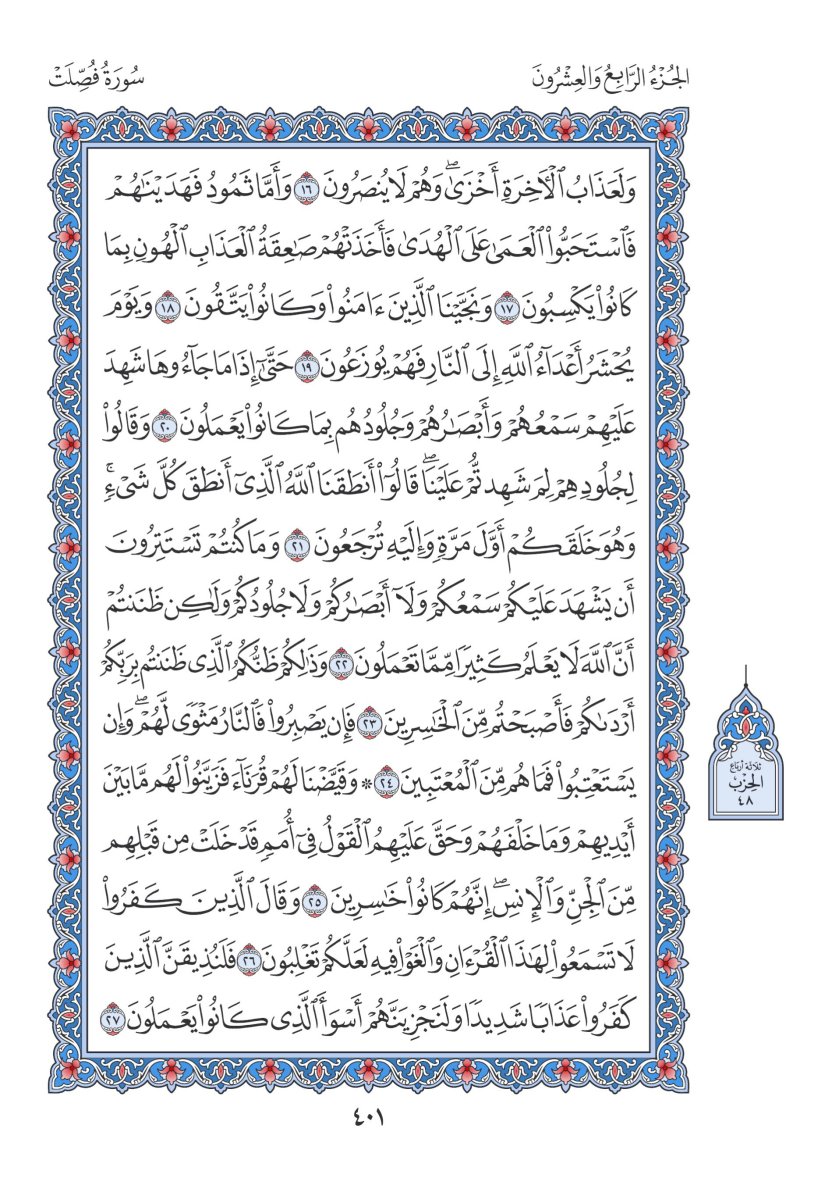 الجُزْءُ الرَّابِعُ وَالعِشْرُونَ
سُورَةُ فُصِّلَتْ
وَلَعَذَابُ ٱلْأَخِرَةِ أَخْزَىٰۖ وَهُمْ لَا يُنصَرُونَ ١٦ وَأَمَّا ثَمُودُ فَهَدَيْنَٰهُمْ
فَٱسْتَحَبُّواْ ٱلْعَمَىٰ عَلَى ٱلْهُدَىٰ فَأَخَذَتْهُمْ صَٰعِقَةُ ٱلْعَذَابِ ٱلْهُونِ بِمَا
كَانُواْ يَكْسِبُونَ ١٧ وَنَجَّيْنَا ٱلَّذِينَ ءَامَنُواْ وَكَانُواْ يَتَّقُونَ ١٨ وَيَوْمَ
يُحْشَرُ أَعْدَآءُ ٱللَّهِ إِلَى ٱلنَّارِ فَهُمْ يُوزَعُونَ ١٩ حَتَّىٰٓ إِذَا مَا جَآءُوهَا شَهِدَ
عَلَيْهِمْ سَمْعُهُمْ وَأَبْصَٰرُهُمْ وَجُلُودُهُم بِمَا كَانُواْ يَعْمَلُونَ ٢٠ وَقَالُواْ
لِجُلُودِهِمْ لِمَ شَهِدتُّمْ عَلَيْنَاۖ قَالُوٓاْ أَنطَقَنَا ٱللَّهُ ٱلَّذِيٓ أَنطَقَ كُلَّ شَيْءٖۚ
وَهُوَ خَلَقَكُمْ أَوَّلَ مَرَّةٖ وَإِلَيْهِ تُرْجَعُونَ ٢١ وَمَا كُنتُمْ تَسْتَتِرُونَ
أَن يَشْهَدَ عَلَيْكُمْ سَمْعُكُمْ وَلَآ أَبْصَٰرُكُمْ وَلَا جُلُودُكُمْ وَلَٰكِن ظَنَنتُمْ
أَنَّ ٱللَّهَ لَا يَعْلَمُ كَثِيرٗا مِّمَّا تَعْمَلُونَ ٢٢ وَذَٰلِكُمْ ظَنُّكُمُ ٱلَّذِي ظَنَنتُم بِرَبِّكُمْ
أَرْدَىٰكُمْ فَأَصْبَحْتُم مِّنَ ٱلْخَٰسِرِينَ ٢٣ فَإِن يَصْبِرُواْ فَٱلنَّارُ مَثْوٗى لَّهُمْۖ وَإِن
يَسْتَعْتِبُواْ فَمَا هُم مِّنَ ٱلْمُعْتَبِينَ ٢٤ ۞ وَقَيَّضْنَا لَهُمْ قُرَنَآءَ فَزَيَّنُواْ لَهُم مَّا بَيْنَ
أَيْدِيهِمْ وَمَا خَلْفَهُمْ وَحَقَّ عَلَيْهِمُ ٱلْقَوْلُ فِيٓ أُمَمٖ قَدْ خَلَتْ مِن قَبْلِهِم
مِّنَ ٱلْجِنِّ وَٱلْإِنسِۖ إِنَّهُمْ كَانُواْ خَٰسِرِينَ ٢٥ وَقَالَ ٱلَّذِينَ كَفَرُواْ
لَا تَسْمَعُواْ لِهَٰذَا ٱلْقُرْءَانِ وَٱلْغَوْاْ فِيهِ لَعَلَّكُمْ تَغْلِبُونَ ٢٦ فَلَنُذِيقَنَّ ٱلَّذِينَ
كَفَرُواْ عَذَابٗا شَدِيدٗا وَلَنَجْزِيَنَّهُمْ أَسْوَأَ ٱلَّذِي كَانُواْ يَعْمَلُونَ ٢٧
ثلاثة أرباع
الحِزْب
٤٨
٤٠١